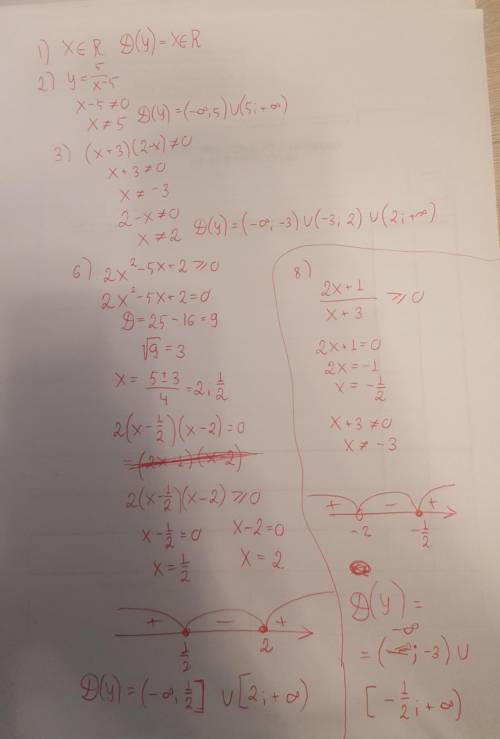 1) x∈R D(y)=x∈R
2) y=5/x-5
x-5≠0
x≠5 D(y)=(-∞,5)∪(5;+∞)
3) (x+3)(2-x)≠0
x+3≠0
x≠-3
2-x≠0
x≠2 D(y)=(-∞,-3)∪(-3;2)∪(2;+∞)
6) 2x²-5x+2≥0
2x²-5x+2=0
D=25-16=9
√9=3
x=5±3/4=2,1/2
2(x-1/2)(x-2)=0
2(x-1/2)(x-2)≥0
x-1/2=0 x-2=0
x=1/2 x=2
+ - +
1/2 2
D(y)=(-∞,1/2]∪[2;+∞)
8)
2x+1/x+3 ≥0
2x+1=0
2x=-1
x=-1/2
x+3≠0
x≠-3
+ - +
-1/2
D(y)=
-∞
=( ;-3)∪
[-1/2;+∞)